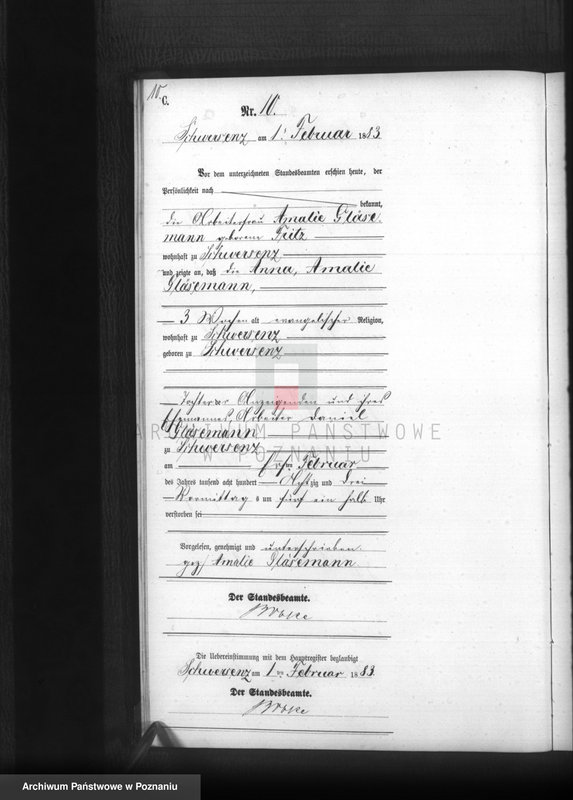 10.
C.
Nr. 10.
Schwersenz am 1. Februar 1883
Vor dem unterzeichneten Standesbeamten erschien heute, der
Persönlichkeit nach
bekannt,
die Arbeiterfrau Amalie Gläse-
mann geborene Fritz
wohnhaft zu Schwersenz
und zeigte an, daß die Anna, Amalie
Gläsemann,
3 Wochen alt evangelischer Religion,
wohnhaft zu Schwersenz
geboren zu Schwersenz
Tochter der Anzeigenden und ihres
Ehemannes Arbeiter Daniel
Gläsemann
zu Schwersenz
am ersten Februar
des Jahres tausend acht hundert Achtzig und drei
Vormittags um fünf ein halb Uhr
verstorben sei
Vorgelesen, genehmigt und unterschrieben
gez. Amalie Gläsemann
Der Standesbeamte.
Die Uebereinstimmung mit dem Hauptregister beglaubigt
Schwersenz am 1ten Februar 1883.
Der Standesbeamte.
ARCHIWUM PAŃSTWOWE
W POZNANIU
Archiwum Państwowe w Poznaniu